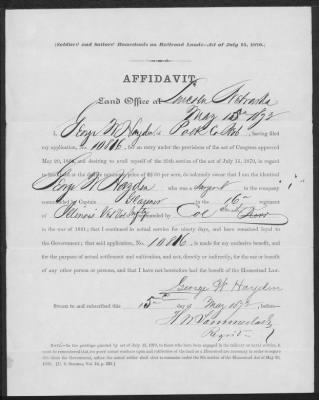 (Soldiers' and Sailors' Homesteads on Railroad Lands—Act of July 15, 1870.)
AFFIDAVIT.
Land Office at Lincoln Nebraska
May 15th 1872
I, George W Hayden of Polk Co Neb, having filed
my application, No. 10816, for an entry under the provisions of the act of Congress approved
May 20, 1862, and desiring to avail myself of the 25th section of the act of July 15, 1870, in regard
to land held at the double minimum price of $2.50 per acre, do solemnly swear that I am the identical
George W Hayden who was a Sergeant in the company "i"
commanded by Captain in the 16th regiment
of Illinois commanded by Coe
the war of 1861; that I continued in actual service for ninety days, and have remained loyal to
the Government; that said application, No. 10816, is made for my exclusive benefit, and
for the purpose of actual settlement and cultivation, and not, directly or indirectly, for the use or benefit
of any other person or persons, and that I have not heretofore had the benefit of the Homestead Law.
George W Hayden
Sworn to and subscribed this 15 day of May 1872, before
Register
NOTE.—In the privilege granted by act of July 15, 1870, to those who have been engaged in the military or naval service, it must
be remembered that
the Government, the actual settler shall